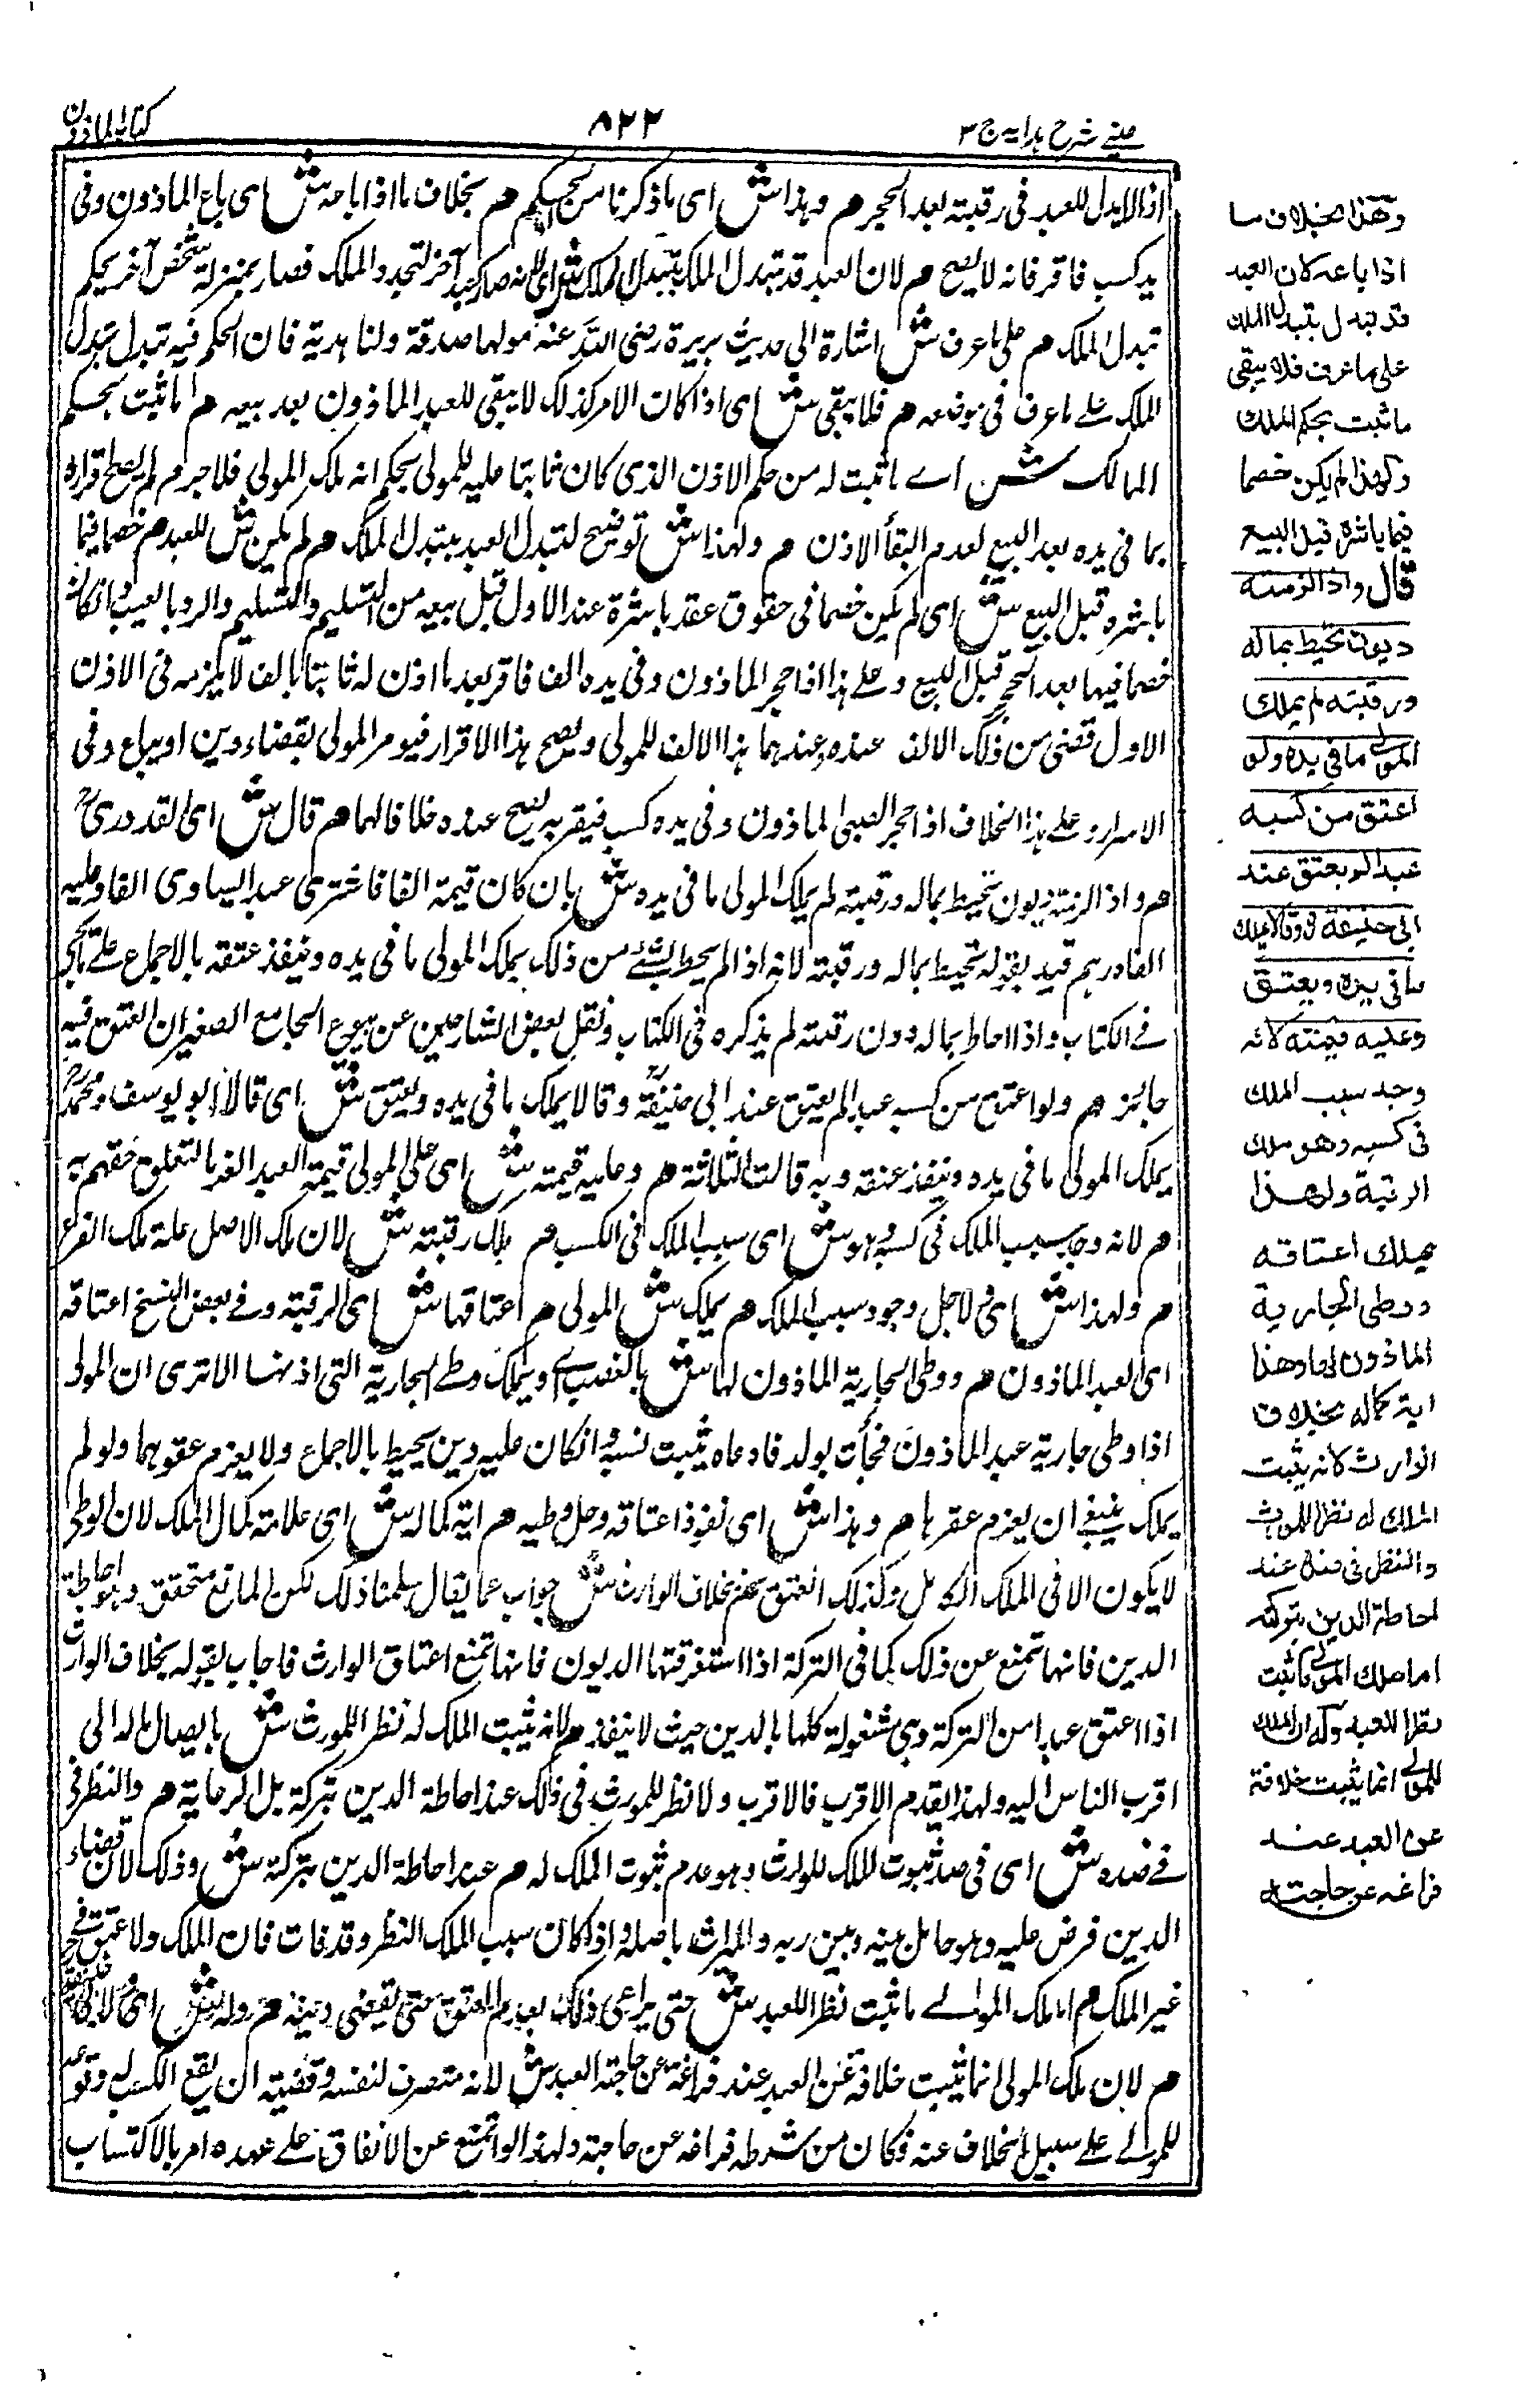 عيني شرح هدايه ج ٣
٨٢٢
كتاب الماذون
اذ لا يدل للعبد فى رقبته بعد الحجر م وهذا ش اى ما ذكرنا من الحكم م بخلاف ما اذا باعه ش اى باع الماذون وفى
يده كسب فاقر فانه لا يصح م لان العبد قد تبدل الملك بتبدل الملك ش اى لانه صار كعبد آخر لتجدد الملك فصار بمنزلة شخص آخر بحكم
تبدل الملك م على ما عرف ش اشارة الى حديث بريرة رضى الله عنه هو لها صدقة ولنا هدية فان الحكم فيه تبدل بتبدل
الملك على ما عرف فى موضعه م فلا يبقى ش اى اذا كان الامر كذلك لا يبقى للعبد الماذون بعد بيعه م ما ثبت بحكم
المالك ش اے ما ثبت له من حكم الاذن الذى كان ثابتا عليه للمولى بحكم انه ملك المولى فلا جرم لم يصح اقراره
بما فى يده بعد البيع لعدم البقاء الاذن م ولهذا ش توضيح لتبدل العبد بتبدل الملك م لم يكن ش للعبد م خصما فيما
باشره قبل البيع ش اى لم يكن خصما فى حقوق عقد باشرة عند الاول قبل بيعه من التسليم والتسليم والرد بالعيب وانكان
خصما فيها بعد الحجر قبل البيع وعلى هذا اذا حجر الماذون وفى يده الف فاقر بعد ما اذن له ثابتا بالف لا يلزمه فى الاذن
الاول قضى من ذلك الالف عنده وعندهما هذا الالف للمولى ويصح هذا الاقرار فيومر المولى بقضاء دين او يباع وفى
الاسرار وعلى هذا الخلاف اذا حجر الصبى الماذون وفى يده كسب فيقر به يصح عنده خلافا لهما م قال ش اى القدورى
م واذا لزمته ديون تحيط بماله ورقبته لم يملك المولى ما فى يده ش بان كان قيمة الفا فاشترى عبدا يساوى الفا وعليه
الفا درهم قيد بقوله تحيط بماله ورقبته لانه اذا لم يحط بشئ من ذلك يملك المولى ما فى يده وينفذ عتقه بالاجماع على ما يجئ
فے الكتاب واذا احاط بماله دون رقبته لم يذكره فى الكتاب ونقل بعض الشارحين عن بيوع الجامع الصغير ان العتق فيه
جائز م ولو اعتق من كسبه عبدا لم يعتق عند ابى حنيفة وقالا يملك ما فى يده ويعتق ش اى قالا ابو يوسف ومحمد
يملك المولى ما فى يده وينفذ عتقه وبه قالت الثلاثة م وعليه قيمته ش اى على المولى قيمة العبد الغرما لتعلق حقهم به
م لانه وجد سبب الملك فى كسبه وهو ش اى سبب الملك فى الكسب م ملك رقبته ش لان ملك الاصل علة ملك الفرع
م ولهذا ش اى لاجل وجود سبب الملك م يملك ش المولى م اعتاقها ش اى الرقبة وفى بعض النسخ اعتاقه
اى العبد الماذون م ووطى الجارية الماذون لها ش بالنصب اى ويملك وطى الجارية التى اذنها الا ترى ان المولى
اذا وطى جارية عبده الماذون فجأت بولد فادعاه يثبت نسبه وانكان عليه دين يحيط بالاجماع ولا يغرم عقرهما ولو لم
يملك ينبغى ان يغرم عقرها م وهذا ش اى نفوذ اعتاقه وحل وطيه م اية كماله ش اى علامة كمال الملك لان الوطى
لا يكون الا فى الملك الكامل وكذلك العتق م بخلاف الوارث ش جواب عما يقال سلمنا ذلك لكن المانع متحقق وهو احاطة
الدين فانها تمنع عن ذلك كما فى التركة اذا استغرقتها الديون فانها تمنع اعتاق الوارث فاجاب بقوله بخلاف الوارث
اذا اعتق عبدا من التركة وهى مشغولة كلها بالدين حيث لا ينفذ م لانه يثبت الملك له نظرا للمورث ش بايصال ماله الى
اقرب الناس اليه ولهذا يقدم الاقرب فالاقرب ولا نظر للمورث فى ذلك عند احاطة الدين بتركته بل الرعاية م والنظر فى
فے ضده ش اى فى ضد ثبوت الملك للوارث وهو عدم ثبوت الملك له م عند احاطة الدين بتركته ش وذلك لان قضاء
الدين فرض عليه وهو حائل بينه وبين ربه والميراث باصله واذا كان سبب الملك النظر وقد فات فان الملك ولا عتق فى
غير الملك م اما ملك المولے ما ثبت نظرا للعبد ش حتى يراعى ذلك بعدم العتق حتى يقضى دينه م وله ش اى
م لان ملك المولى انما يثبت خلافة عن العبد عند فراغه عن حاجته العبد ش لانه متصرف لنفسه وقضيته ان يقع الكسب له
للمولے على سبيل الخلاف عنه فكان من شرطه فراغه عن حاجته ولهذا لو امتنع عن الانفاق على عبده امر بالاكتساب
وهذا بخلاف ما
اذا باعه لان العبد
قد تبدل بتبدل الملك
على ما عرف فلا يبقى
ما ثبت بحكم الملك
ولهذا لم يكن خصما
فيما باشره قبل البيع
قال واذا لزمته
ديون تحيط بماله
ورقبته لم يملك
المولى ما فى يده ولو
اعتق من كسبه
عبدا لم يعتق عند
ابى حنيفة وقالا يملك
ما فى يده ويعتق
وعليه قيمته لانه
وجد سبب الملك
فى كسبه وهو ملك
الرقبة ولهذا
يملك اعتاقه
ووطى الجارية
الماذون لها وهذا
اية كماله بخلاف
الوارث لانه يثبت
الملك له نظرا للمورث
والنظر فى ضده عند
احاطة الدين بتركته
اما ملك المولى ما ثبت
نظرا للعبد وله ان ملك
المولى انما يثبت خلافة
عن العبد عند
فراغه عن حاجته